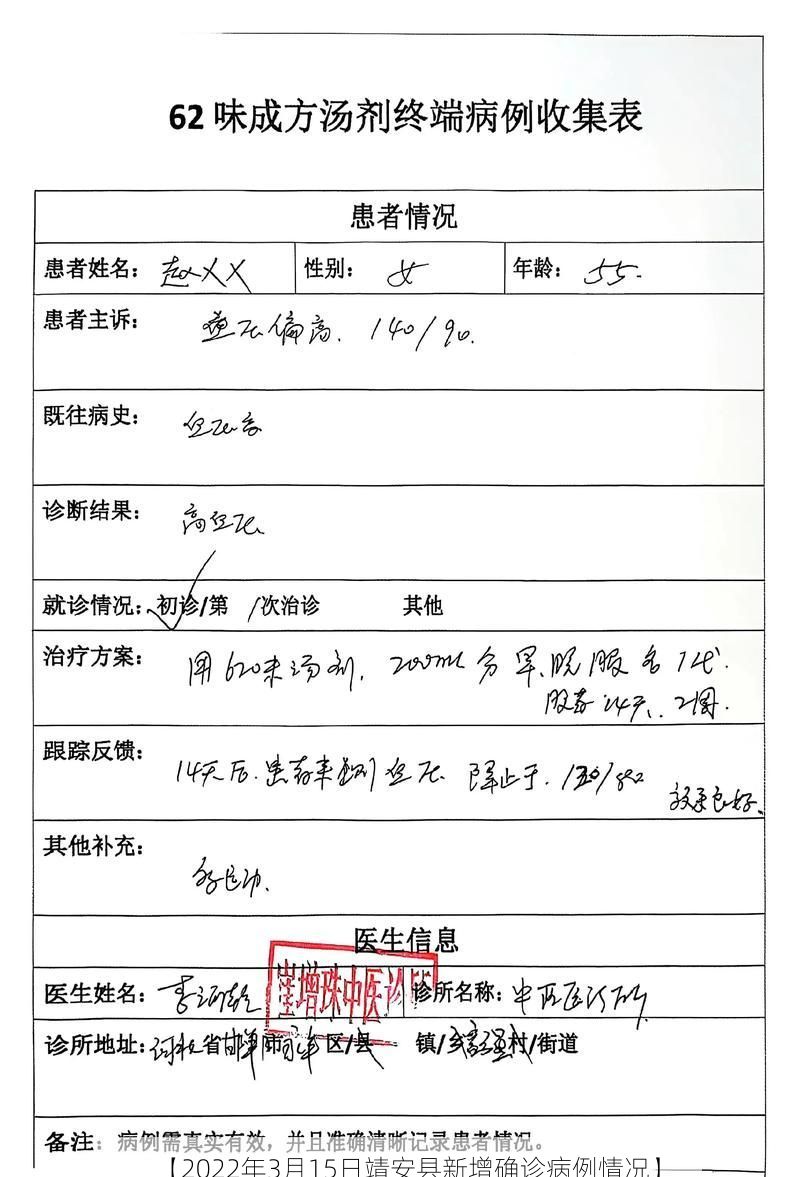 62 味成方汤剂终端病例收集表
患者情况
患者姓名：赵XX 性别：女 年龄：55.
患者主诉：血压偏高. 140/90.
既往病史：血压高
诊断结果：高血压
就诊情况：初诊/第 /次治诊 其他
治疗方案：用62味汤剂. 200ml 分早.晚服各1代.
服药14天. 2周.
跟踪反馈：14天后.患者来量测血压 降止于. /80
效果良好.
其他补充：
医生信息
医生姓名：李 诊所名称：中医诊所
崔增珠中医诊所
诊所地址：河北省邯郸市 区/县 镇/乡 村/街道
备注：病例需真实有效，并且准确清晰记录患者情况。
【2022年3月15日靖安县新增确诊病例情况】